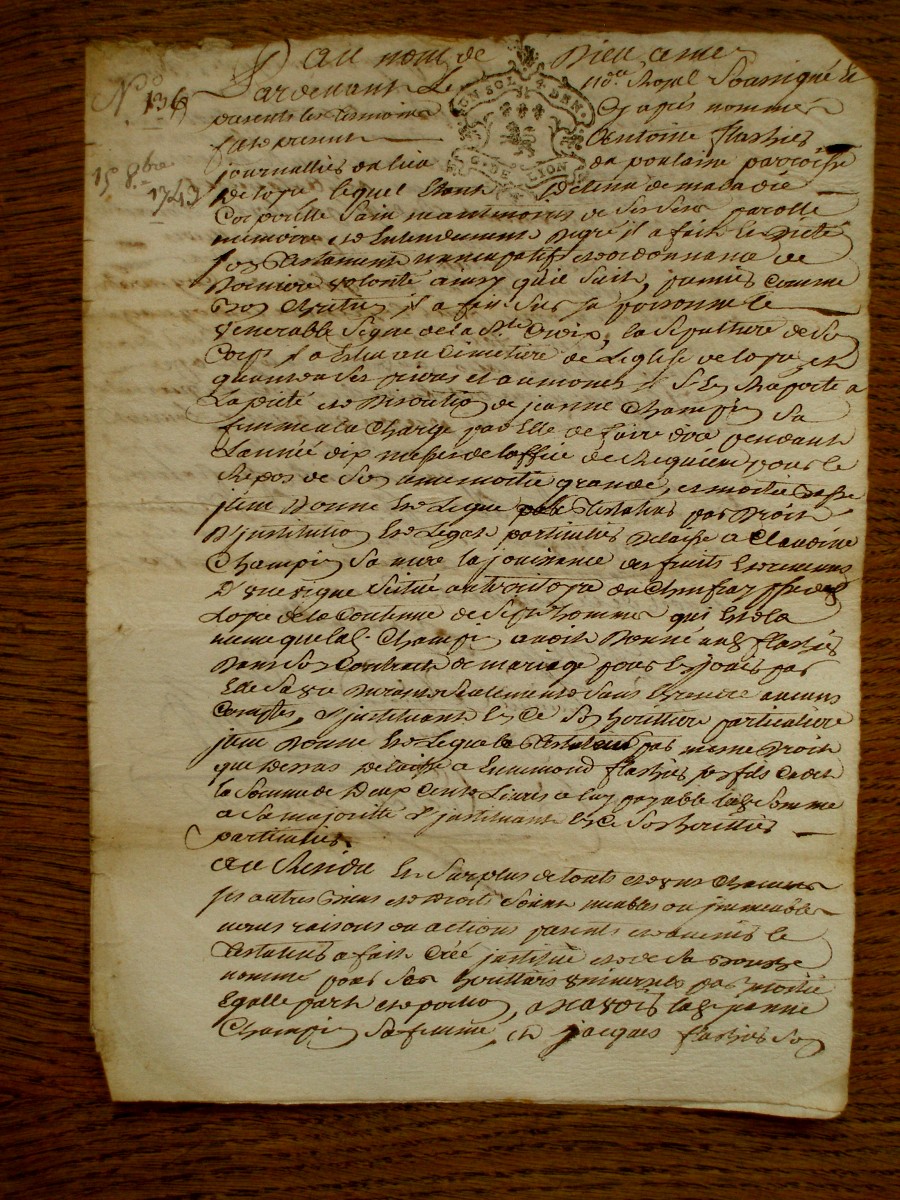 Au nom de Dieu amen
Pardevant le no.re Royal Soussigné &
N.o 136
presents les temoins Cy après nommés
fut present Antoine flachiés
journallier du lieu du poulaine parroisse
15 8bre
1743
de loyre lequel Etant detenu de maladie
Corporelle Sain neantmoins de ses sens parolle
memoire et Entendement De gré il a fait et Dicté
son testament nuncupatif et ordonnance de
Derniere volonté ainsy qu'il suit, premier comme
bon chrétien il a fait sur sa personne le
venerable Signe de la S.te Croix, la Sepulture de so
Corps il a Eslu au Cimetiere de l'Eglise de loyre et
quant a ses prieres et aumones il S'En Raporte a
La pieté et Devotion de jeanne Champin sa
femme a la Charge par Elle de faire dire pendant
L'année dix messes de l'office de Requiem pour le
Repos de Son ame moitié grande, et moitié basse
jtem Donne Et Legue le testateur par Droit
D'jnstitution Et Legat particulier Delaisse a Claudine
Champin Sa mere la jouissance des fruits Et revenus
D'une vigne Située au territoire du
Loyre de la Contenue de Sept hommes qui Est la
meme que lad. Champin avoit Donné aud. flachiés
Dans Son Contract de mariage pour En jouir par
Elle Sa vie Durante Seulement et Sans En rendre aucuns
Comptes, L'jnstituant En Ce Son heritiere particuliere
jtem Donne Et Legue le testateur par meme Droit
que Dessus Delaisse a Ennemond flachiés son fils Cadet
la Somme de Deux Cents Livres a luy payable lad. Somme
a Sa majorité L'jnstituant En Ce Son heritier
particulier.
Et au Residu Et Surplus de touts et uns Chacuns
ses autres Biens et Droits Soient meubles ou jmmeubles
noms raisons ou actions presents et avenir le
testateur a fait Créé jnstitué et de Sa Bouche
nommé pour Ses heritiers universels par moitié
Egalle part et portion, a Sçavoir lad. jeanne
Champin Sa femme, Et jacques flachiés So